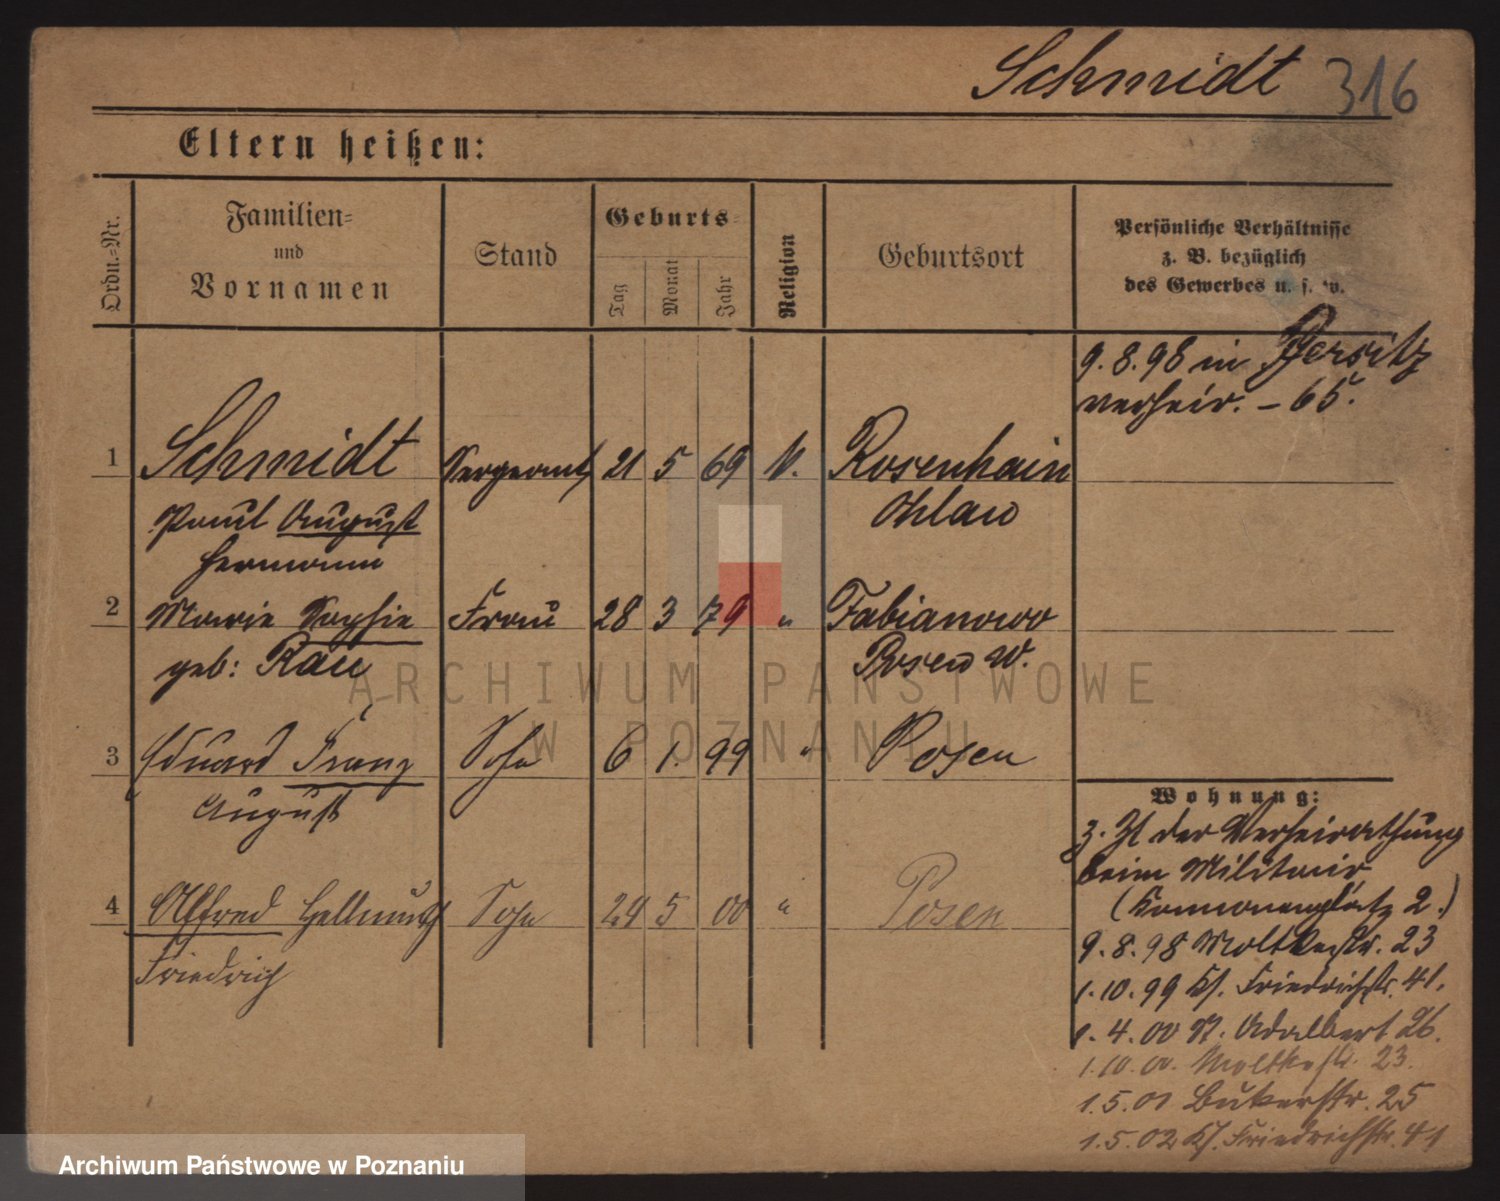 Schmidt 316
Eltern heißen:
Ordn.=Nr.
Familien=
und
Vornamen
Stand
Geburts=
Tag
Monat
Jahr
Religion
Geburtsort
Persönliche Verhältnisse
z. B. bezüglich
des Gewerbes u. s. w.
9.8.98 in Jersitz
verheir. – 65.
1 Schmidt Sergeant 21 5 69 Rosenhain
Paul August Ohlau
Hermann
2 Marie Sophie Frau 28 3 79 " Fabianowo
geb: Rau Posen W.
3 Eduard Franz Sohn 6 1. 99 " Posen
August
4 Alfred Hellmuth Sohn 24 5 00 " Posen
Friedrich
Wohnung:
z. Zt der Verheirathung
beim Militair
(Kanonenplatz 2.)
9.8.98 Moltkestr. 23
1.10.99 Kl. Friedrichstr. 41.
1.4.00 St. Adalbert 26.
1.10.00. Moltkestr. 23.
1.5.01 Bukerstr. 25
1.5.02 Kl. Friedrichstr. 41
ARCHIWUM PAŃSTWOWE
W POZNANIU
Archiwum Państwowe w Poznaniu